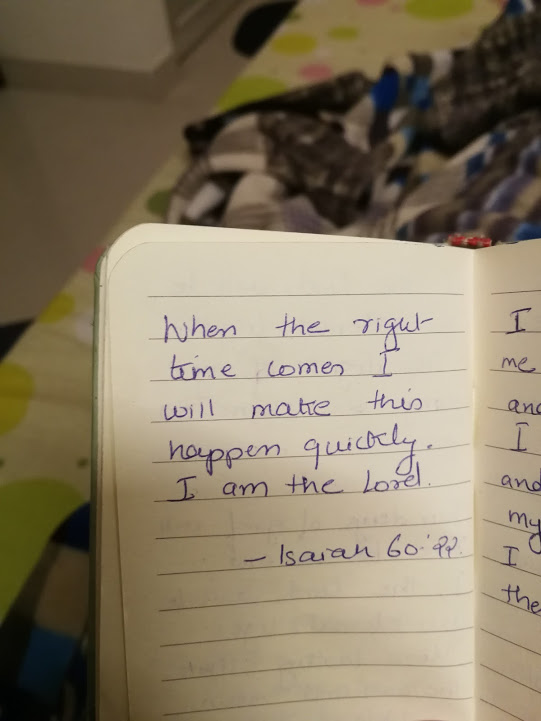 When the right
time comes I
will make this
happen quickly.
I am the Lord.
- Isaiah 60:22.
I
me
and
I
and
my
I
the